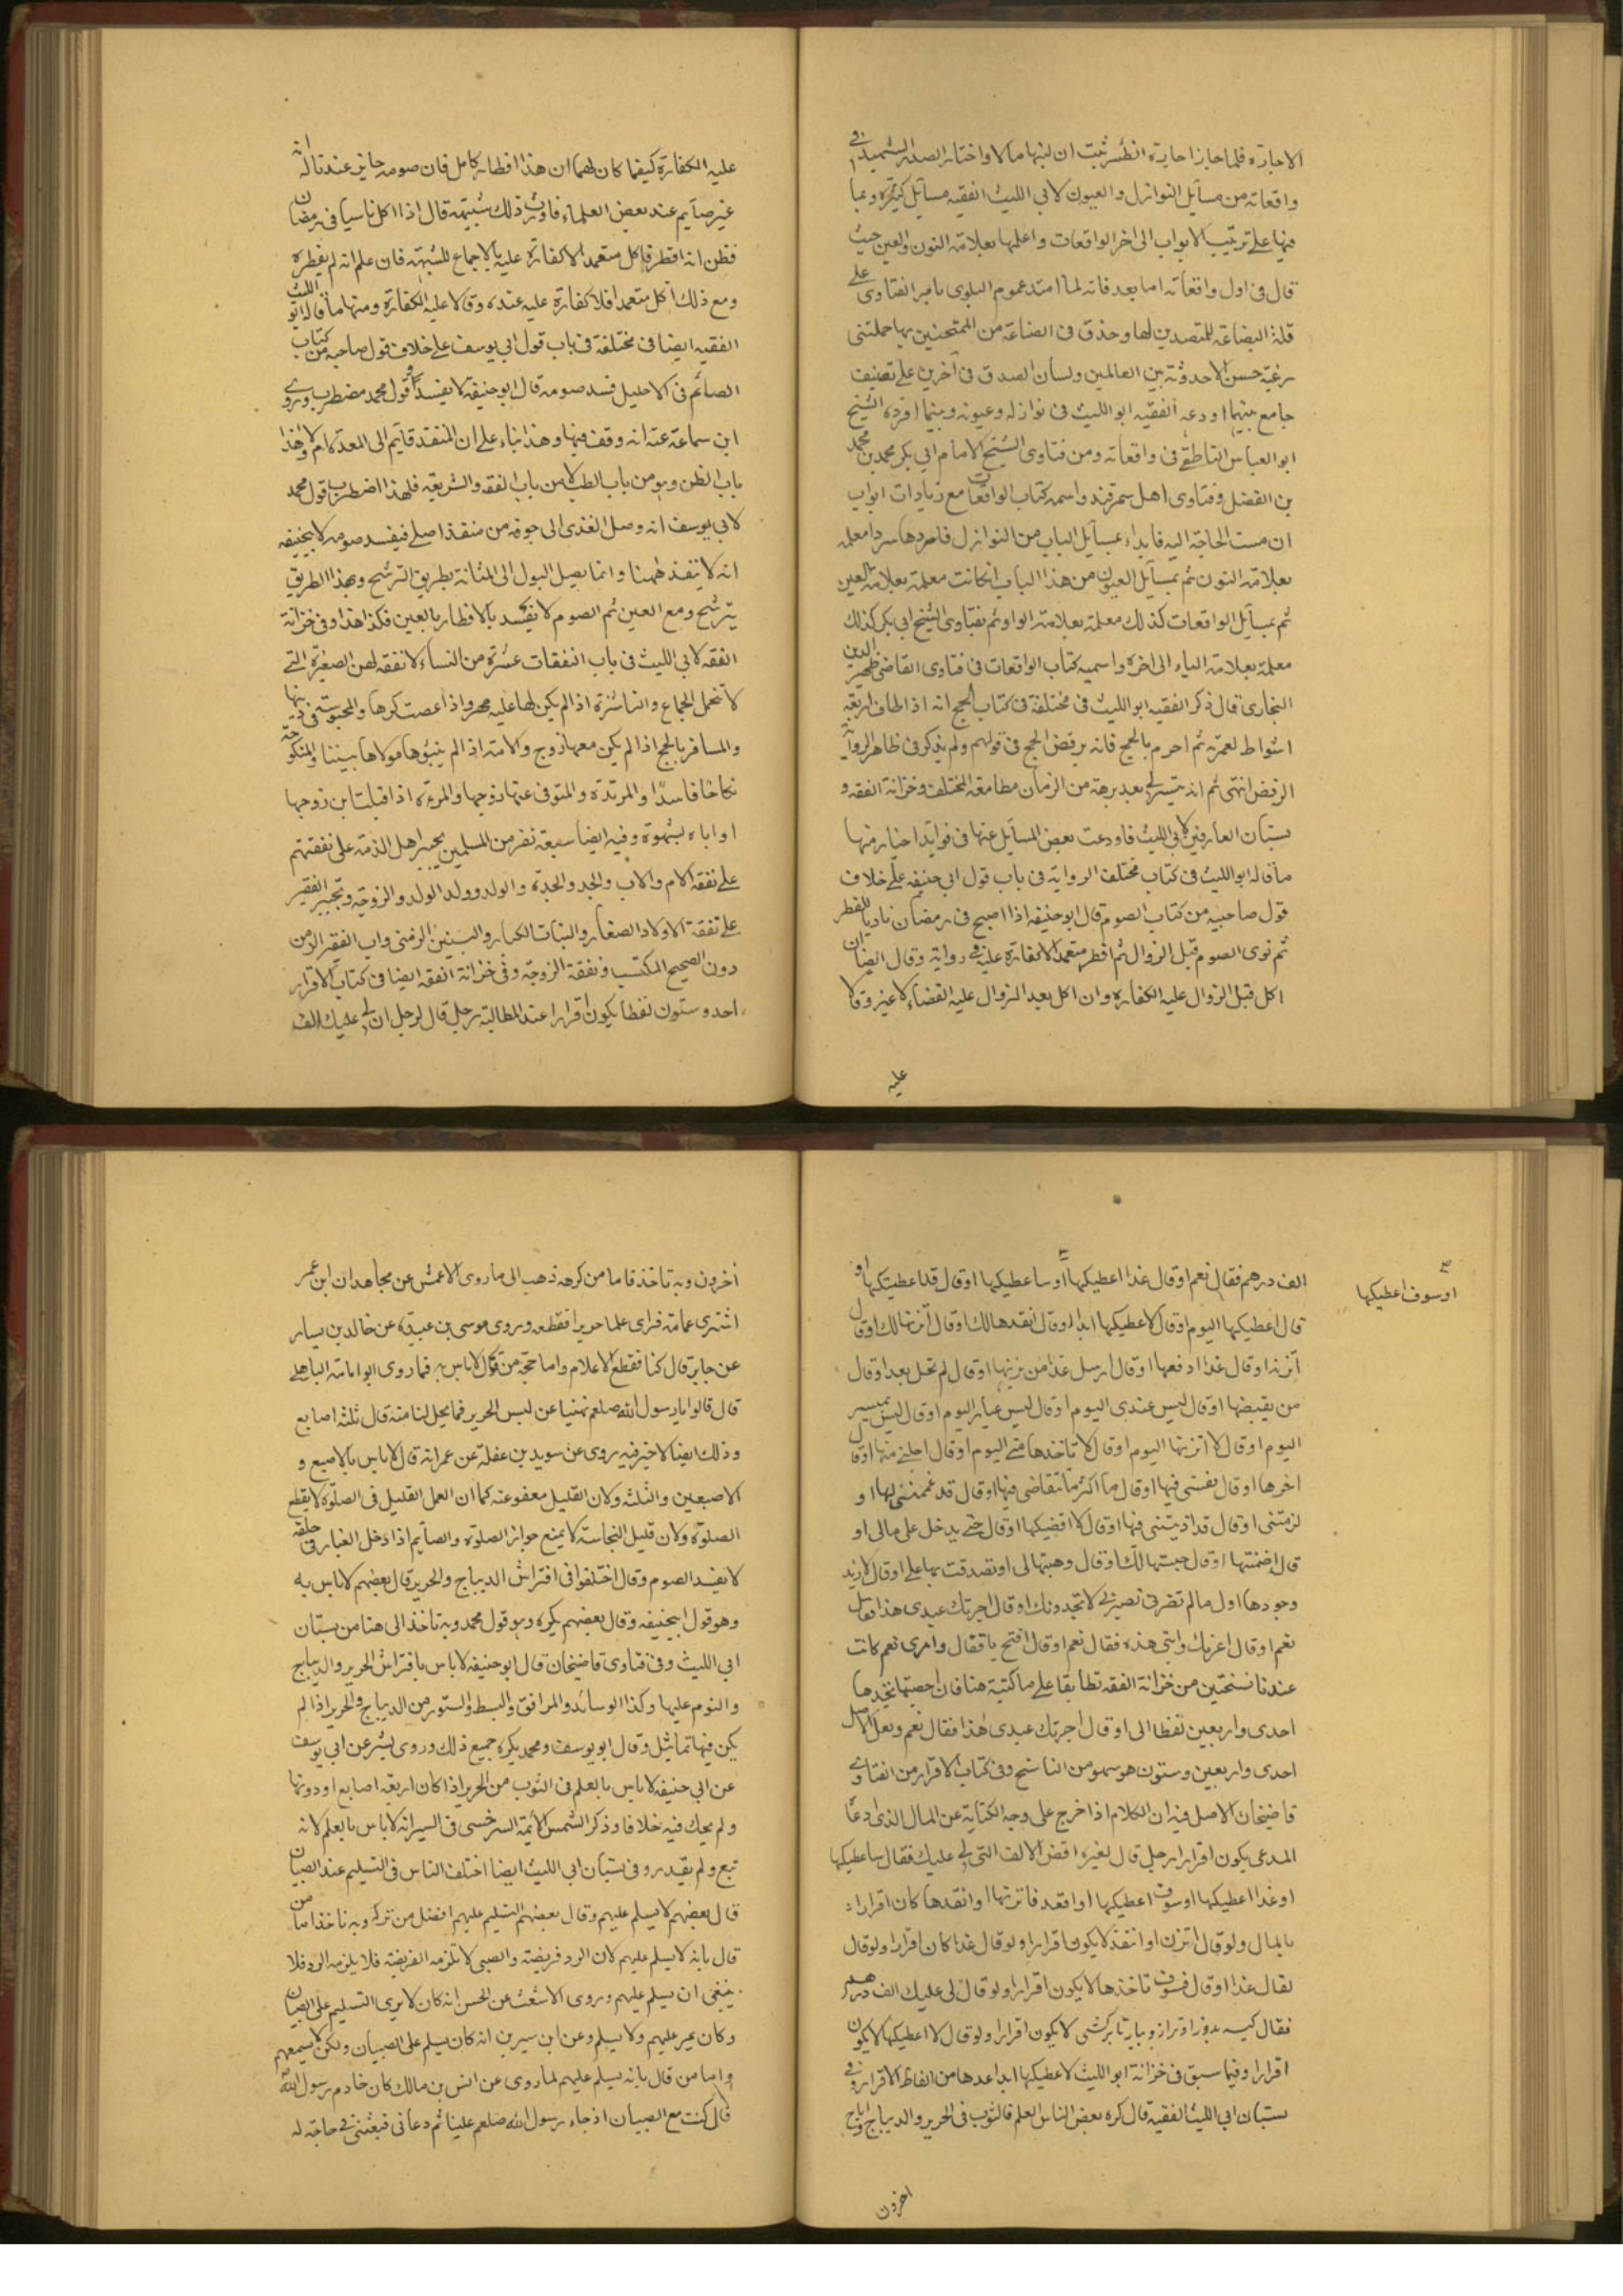 الاجازه فلما جاز اجازة الظئر ثبت ان لبنها مالا واختار الصدر الشهيد في
واقعاته من مسآيل النوازل والعيون لابي الليث الفقيه مسآيل كثيرة وبدأ
فيها على ترتيب الابواب الى اخر الواقعات واعلمها بعلامة النون والعين حيث
قال في اول واقعاته اما بعد فانه لما امتد عموم البلوى بامر الفتاوى على
قلة البضاعة للمتصدين لها وحذق في الصناعة من الممتحنين بها حملتني
رغبة حسن الاحدوثة بين العالمين ولسان الصدق في آخرين على تصنيف
جامع بينما اودعه الفقيه ابو الليث في نوازله وعيونه وبينما افرده الشيخ
ابو العباس الناطفي في واقعاته ومن فتاوى الشيخ الامام ابي بكر محمد بن محمد
بن الفضل وفتاوى اهل سمرقند واسمه كتاب الواقعات مع زيادات ابواب
ان مست الحاجة اليه فابداء بمسآيل الباب من النوازل فاسردها سردا معلمه
بعلامة النون ثم بمسآيل العيون من هذا الباب انكانت معلمة بعلامة العين
ثم بمسآيل الواقعات كذلك معلمة بعلامة الواو ثم بفتاوى الشيخ ابي بكر كذلك
معلمة بعلامة الباء الى اخره واسميه كتاب الواقعات في فتاوى القاضي ظهير الدين
البخارى قال ذكر الفقيه ابو الليث في مختلفة في كتاب الحج انه اذا طاف اربعة
اشواط لعمرته ثم احرم بالحج فانه يرفض الحج في قولهم ولم يذكر في ظاهر الرواية
الرفض انتهى ثم انه تيسر لي بعد برهة من الزمان مطالعة المختلف وخزانة الفقه و
بستان العارفين لابي الليث فاودعت بعض المسآيل عنها في فوايد اخبار منها
ما قاله ابو الليث في كتاب مختلف الرواية في باب قول ابي حنيفه على خلاف
قول صاحبيه من كتاب الصوم قال ابو حنيفه اذا اصبح في رمضان ناويا للفطر
ثم نوى الصوم قبل الزوال ثم افطر متعمدا لاكفارة عليه في رواية وقال ايضا ان
اكل قبل الزوال عليه الكفاره وان اكل بعد الزوال عليه القضاء لا غير وقالا
عليه
عليه الكفارة كيفما كان لهما ان هذا افطار كامل فان صومه جايز عندنا لانه
غير صآيم عند بعض العلماء فاورث ذلك شبهة قال اذا اكل ناسيا في رمضان
فظن انه افطر فاكل متعمدا لاكفارة عليه بالاجماع للشبهة فان علم انه لم يفطره
ومع ذلك اكل متعمدا فلا كفارة عليه عنده وقالا عليه الكفارة ومنها ما قاله ابو الليث
الفقيه ايضا في مختلفة في باب قول ابي يوسف على خلاف قول صاحبه من كتاب
الصائم في الاحليل فسد صومه قال ابو حنيفة لا يفسد وقول محمد مضطرب وروى
ابن سماعة عنه انه وقف فيها وهذا بناء على ان المنفذ قآيم الى المعدة ام لا وهذا
باب الظن وهو من باب الطب لا من باب الفقه والشريعة فلهذا اضطرب قول محمد
لابي يوسف انه وصل الغذى الى جوفه من منفذ اصلي فيفسد صومه لابيحنيفه
انه لا ينفذ ههنا وانما يصل البول الى المثانة بطريق الترشح وبهذا الطريق
يترشح ومع العين ثم الصوم لا يفسد بالاقطار بالعين فكذا هذا وفي خزانة
الفقه لابي الليث في باب النفقات عشرة من النساء لا نفقه لهن الصغيرة التي
لا تحمل الجماع والناشزة اذا لم يكن لها عليه مهر واذا عصت كرها والمحبوسة في دينها
والمسافر بالحج اذا لم يكن معها زوج والامة اذا لم يبوءها مولاها بيننا والمنكوحة
نكاحا فاسدا والمرتدة والمتوفى عنها زوجها والمرءة اذا قبلت ابن زوجها
او اباه بشهوة وفيه ايضا سبعة نفر من المسلمين يجبر اهل الذمة على نفقتهم
على نفقة الام والاب والجد والجدة والولد وولد الولد والزوجة ويجبر الفقير
على نفقة الاولاد الصغار والبنات الكبار والبنين الزمنى واب الفقير الزمن
دون الصحيح المكتسب ونفقة الزوجة وفي خزانة الفقه ايضا في كتاب الاقرار
احد وستون لفظا يكون اقرارا عند المطالبة رجل قال لرجل ان لي عليك الف
اوسوف اعطيكها
الف درهم فقال نعم اوقال غدا اعطيكها اوساعطيكها اوقال قد اعطيتكها او
قال اعطيكها اليوم اوقال لا اعطيكها ابدا اوقال انقدها لك اوقال اتزنها لك اوقال
آتزن اوقال غدا ادفعها اوقال ارسل غدا من يزنها اوقال لم تحل بعد اوقال
من يقبضها اوقال ليس عندى اليوم اوقال ليس عيار اليوم اوقال ليس بميسر
اليوم اوقال لا اتزنها اليوم اوقال لا تاخذها مني اليوم اوقال اجلني منها اوقال
اخرها اوقال نفسني فيها اوقال ما اكثر ما تتقاضى فيها اوقال قد غممتني بها او
لزمتني اوقال قد اذيتني فيها اوقال لا اقضيكها اوقال حتى يدخل على مالى او
قال اضمنتها اوقال حبستها لك اوقال وهبتها لى اوتصدقت بها علي اوقال لا ازيد
نعم اوقال اعزبك وابتى هذه فقال نعم اوقال افتح ياقفال وامرى نعم كانت
عندنا نسختين من خزانة الفقه تطابقا على ما كتبته هنا فان احصيتها تجدها
احدى واربعين لفظا الى اوقال اجرتك عبدى هذا فقال نعم ولعل الاصل
احدى واربعين وستون هو سهو من الناسخ وفي كتاب الاقرار من الفتاوى
قاضيخان الاصل فيه ان الكلام اذا خرج على وجه الكناية عن المال الذى ادعا
المدعى يكون اقرارا رجل قال لغيره اقض الالف التي لي عليك فقال ساعطيكها
اوغدا اعطيكها اوسوف اعطيكها اواقعد فاتزنها اوانقدها كان اقرارا
بالمال ولوقال اتزن اوانتقد لا يكون اقرارا ولوقال غدا كان اقرارا ولوقال
لقال غدا اوقال فسوف تاخذها لا يكون اقرارا ولوقال لى عليك الف درهم
فقال كيسه بدوز اوترازو بيار تا بركشى لا يكون اقرارا ولوقال لا اعطيكها لا يكون
اقرارا وفيما سبق في خزانة ابو الليث لا عطيكها ابدا عدها من الفاظ الاقرار وفي
بستان ابي الليث الفقيه قال كره بعض الناس العلم فالثوب في الحرير والديباج واباح
اخرون
اخرون وبه تاخذ فاما من كرهه ذهب الى ما روى الاعمش عن مجاهد ان ابن عمر
اشترى عمامة فراى علما حريرا فقطعه وروى موسى بن عبيدة عن خالد بن يسار
عن جابر قال كنا نقطع الاعلام واما حجة من قال لاباس به فما روى ابو امامة الباهلي
قال قالوا يارسول الله صلعم نهتنا عن لبس الحرير فما يحل لنا منه قال ثلثه اصابع
وذلك ايضا لا خير فيه روى عن سويد بن غفلة عن عمر انه قال لا باس بالاصبع و
الاصبعين والثلثه وكان القليل معفو عنه كما ان العمل القليل في الصلوة لا يقطع
الصلوة وكان قليل النجاسة لا يمنع جواز الصلوة والصآيم اذا دخل الغبار في حلقه
لا يفسد الصوم وقال اختلفوا في افتراش الديباج والحرير قال بعضهم لا باس به
وهو قول ابيحنيفه وقال بعضهم يكره وهو قول محمد وبه تاخذ الى هنا من بستان
ابي الليث وفي فتاوى قاضيخان قال ابو حنيفه لا باس بافتراش الحرير والديباج
والنوم عليها وكذا الوسائد والمرافق والبسط والستور من الديباج والحرير اذا لم
يكن فيها تماثيل وقال ابو يوسف ومحمد يكره جميع ذلك وروى بشر عن ابي يوسف
عن ابي حنيفه لا باس بالعلم في الثوب من الحرير اذا كان اربعة اصابع او دونها
ولم يحك فيه خلافا وذكر الشمس الائمة السرخسى في السير انه لا باس بالعلم لانه
تبع ولم يقدره وفي بستان ابي الليث ايضا اختلف الناس في التسليم عند الصبيان
قال بعضهم لا يسلم عليهم وقال بعضهم التسليم عليهم افضل من تركه وبه ناخذ اما من
قال بانه لا يسلم عليهم لان الرد فريضة والصبى لا تلزمه الفريضة فلا يلزمه الرد فلا
ينبغى ان يسلم عليهم وروى الاشعث عن الحسن انه كان لا يرى التسليم على الصبيان
وكان يمر عليهم ولا يسلم وعن ابن سيرين انه كان يسلم على الصبيان ولكن لا يسمعهم
واما من قال بانه يسلم عليهم لما روى عن انس بن مالك كان خادم رسول الله
قال كنت مع الصبيان اذ جاء رسول الله صلعم علينا ثم دعانى فبعثنى في حاجة له